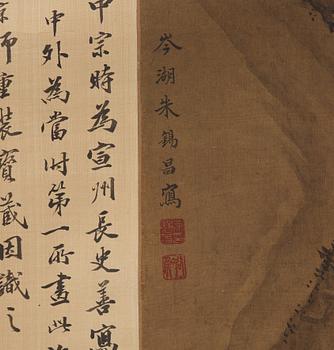 岑湖朱錫昌寫
中宗時為宣州長史善寫
中外為當時第一所畫此
京師重裝寶藏因識之